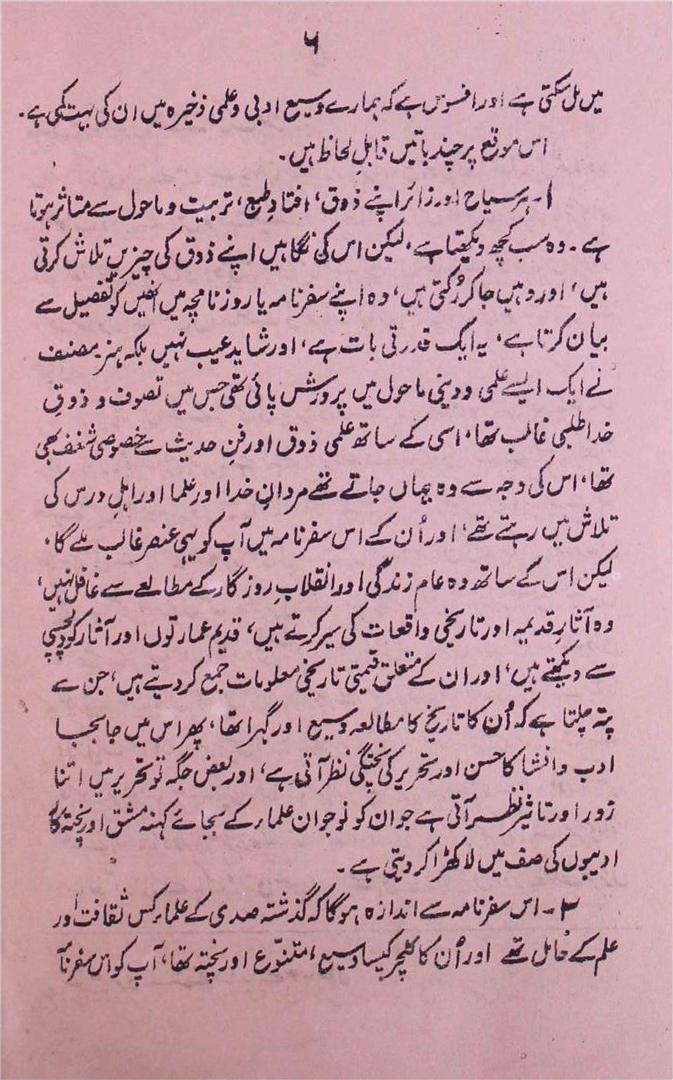 ۶
میں مل سکتی ہے اور افسوس ہے کہ ہمارے وسیع ادبی و علمی ذخیرہ میں ان کی بہت کمی ہے۔
اس موقع پر چند باتیں قابلِ لحاظ ہیں۔
۱۔ ہر سیاح اور زائر اپنے ذوق، افتادِ طبع، تربیت و ماحول سے متاثر ہوتا
ہے۔ وہ سب کچھ دیکھتا ہے، لیکن اس کی نگاہیں اپنے ذوق کی چیزیں تلاش کرتی
ہیں، اور وہیں جا کر رُکتی ہیں، وہ اپنے سفر نامہ یا روزنامچہ میں انھیں کو تفصیل سے
بیان کرتا ہے، یہ ایک قدرتی بات ہے، اور شاید عیب نہیں بلکہ ہنر۔ مصنف
نے ایک ایسے علمی و دینی ماحول میں پرورش پائی تھی جس میں تصوف و ذوقِ
خدا طلبی غالب تھا، اسی کے ساتھ علمی ذوق اور فنِ حدیث سے خصوصی شغف بھی
تھا، اس کی وجہ سے وہ یہاں جاتے تھے مردانِ خدا اور علما اور اہلِ درس کی
تلاش میں رہتے تھے، اور اُن کے اس سفر نامہ میں آپ کو یہی عنصر غالب ملے گا،
لیکن اس کے ساتھ وہ عام زندگی اور انقلابِ روزگار کے مطالعے سے غافل نہیں،
وہ آثارِ قدیمہ اور تاریخی واقعات کی سیر کرتے ہیں، قدیم عمارتوں اور آثار کو دلچسپی
سے دیکھتے ہیں، اور ان کے متعلق قیمتی تاریخی معلومات جمع کر دیتے ہیں، جن سے
پتہ چلتا ہے کہ اُن کا تاریخ کا مطالعہ وسیع اور گہرا تھا، پھر اس میں جا بجا
ادب و انشا کا حسن اور تحریر کی پختگی نظر آتی ہے، اور بعض جگہ تو تحریر میں اتنا
زور اور تاثیر نظر آتی ہے جو ان کو نوجوان علماء کے بجائے کہنہ مشق اور پختہ کار
ادیبوں کی صف میں لا کھڑا کر دیتی ہے۔
۲۔ اس سفر نامہ سے اندازہ ہوگا کہ گذشتہ صدی کے علماء کس ثقافت اور
علم کے حامل تھے اور اُن کا کلچر کیسا وسیع، متنوّع اور پختہ تھا، آپ کو اس سفر نامہ